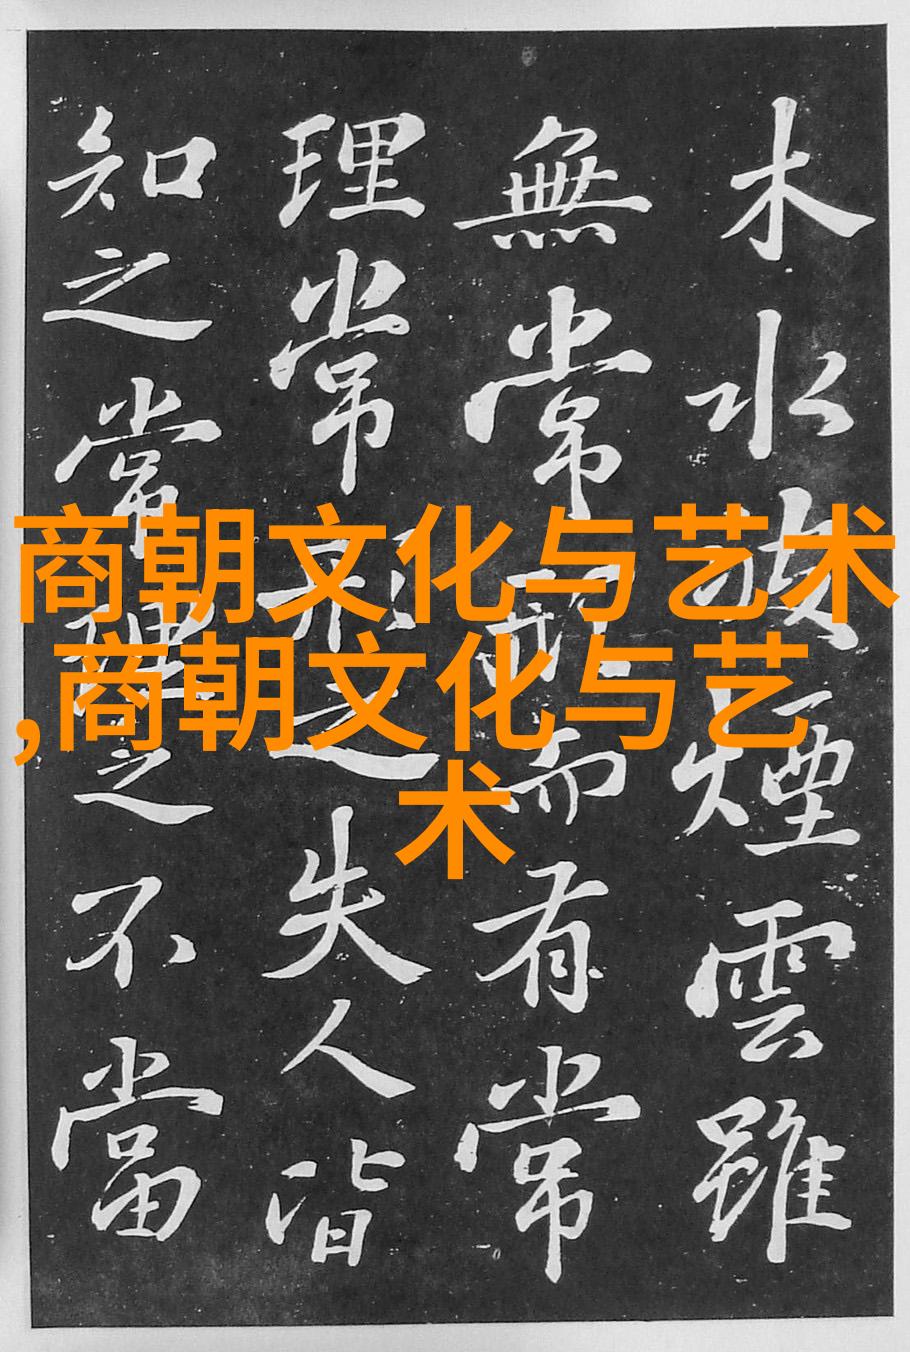 商朝文化与艺术
,商朝文化与艺
术
木水波煙雲雖
無常形而有常
理常形之失人皆
知之常理之不當